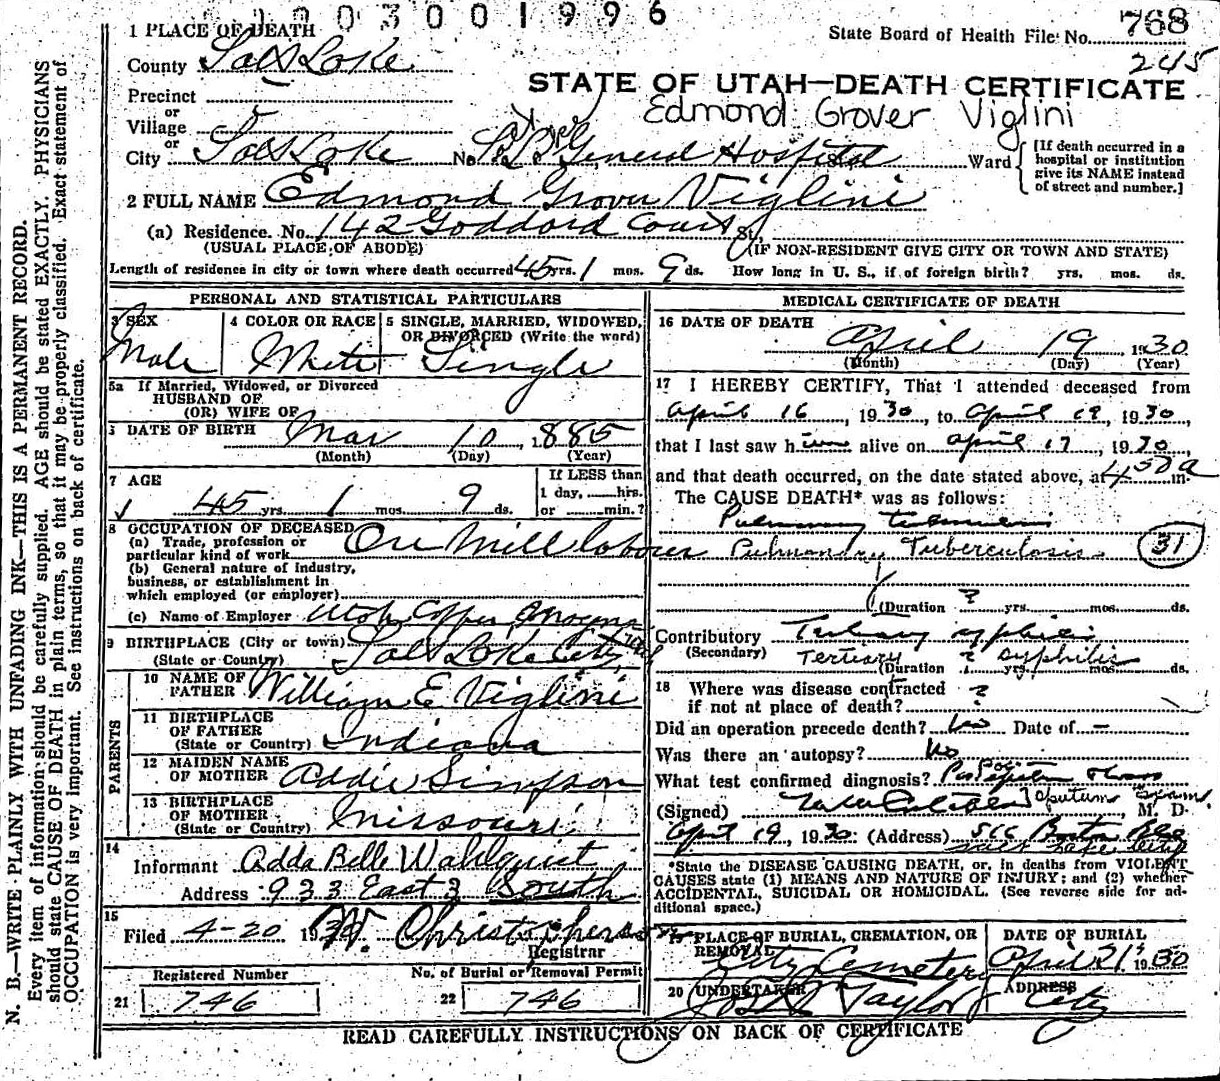 0003001996
1 PLACE OF DEATH
State Board of Health File No. 768
245
County Salt Lake
STATE OF UTAH—DEATH CERTIFICATE
Precinct
or
Edmond Grover Viglini
Village
or
City Salt Lake No. General Hospital Ward
[If death occurred in a hospital or institution give its NAME instead of street and number.]
2 FULL NAME Edmond Grover Viglini
(a) Residence. No. 142 Goddard Court St.,
(USUAL PLACE OF ABODE) (IF NON-RESIDENT GIVE CITY OR TOWN AND STATE)
Length of residence in city or town where death occurred 45 yrs. 1 mos. 9 ds. How long in U. S., if of foreign birth? yrs. mos. ds.
PERSONAL AND STATISTICAL PARTICULARS
3 SEX 4 COLOR OR RACE 5 SINGLE, MARRIED, WIDOWED, OR DIVORCED (Write the word)
Male White Single
5a If Married, Widowed, or Divorced
HUSBAND OF
(OR) WIFE OF
DATE OF BIRTH Mar 10, 1885
(Month) (Day) (Year)
7 AGE If LESS than
1 day, hrs.
45 yrs. 1 mos. 9 ds. or min.?
8 OCCUPATION OF DECEASED
(a) Trade, profession or
particular kind of work Ore Mill laborer
(b) General nature of industry,
business, or establishment in
which employed (or employer)
(c) Name of Employer Utah Copper Magna
9 BIRTHPLACE (City or town) Salt Lake City
(State or Country) Utah
PARENTS
10 NAME OF
FATHER William E Viglini
11 BIRTHPLACE
OF FATHER
(State or Country) Indiana
12 MAIDEN NAME
OF MOTHER Addie Simpson
13 BIRTHPLACE
OF MOTHER
(State or Country) Missouri
14
Informant Adda Belle Wahlquist
Address 933 East 3 South
15
Filed 4-20 1930 W. Christophers
Registrar
Registered Number No. of Burial or Removal Permit
21 746 22 746
MEDICAL CERTIFICATE OF DEATH
16 DATE OF DEATH
April 19 1930
(Month) (Day) (Year)
17 I HEREBY CERTIFY, That I attended deceased from
April 16, 1930, to April 19, 1930,
that I last saw him alive on April 17, 1930,
and that death occurred, on the date stated above, at 450a m.
The CAUSE DEATH* was as follows:
Pulmonary tuberculosis
Pulmonary Tuberculosis 31
(Duration ? yrs. mos. ds.
Contributory Tertiary syphilis
(Secondary) Tertiary syphilis
(Duration ? yrs. mos. ds.
18 Where was disease contracted
if not at place of death? ?
Did an operation precede death? No Date of —
Was there an autopsy? No
What test confirmed diagnosis? Pos
sputum exam
(Signed) M D
April 19, 1930 (Address) Boston Bldg
Salt Lake City
*State the DISEASE CAUSING DEATH, or, in deaths from VIOLENT
CAUSES state (1) MEANS AND NATURE OF INJURY; and (2) whether
ACCIDENTAL, SUICIDAL OR HOMICIDAL. (See reverse side for ad-
ditional space.)
19 PLACE OF BURIAL, CREMATION, OR REMOVAL DATE OF BURIAL
City Cemetery April 21 1930
20 UNDERTAKER ADDRESS
Taylor City
READ CAREFULLY INSTRUCTIONS ON BACK OF CERTIFICATE
N. B.—WRITE PLAINLY WITH UNFADING INK—THIS IS A PERMANENT RECORD.
Every item of information should be carefully supplied. AGE should be stated EXACTLY. PHYSICIANS
should state CAUSE OF DEATH in plain terms, so that it may be properly classified. Exact statement of
OCCUPATION is very important. See instructions on back of certificate.